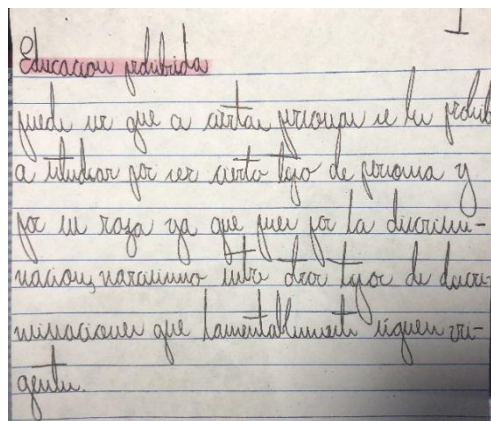 1
Educacion prohibida
puede ser que a ciertas personas se les prohib
a estudiar por ser cierto tipo de persona y
por su raza ya que pues por la discrimi-
nacion, narcisismo entre otros tipos de discri-
minaciones que lamentablemente siguen vi-
gentes.